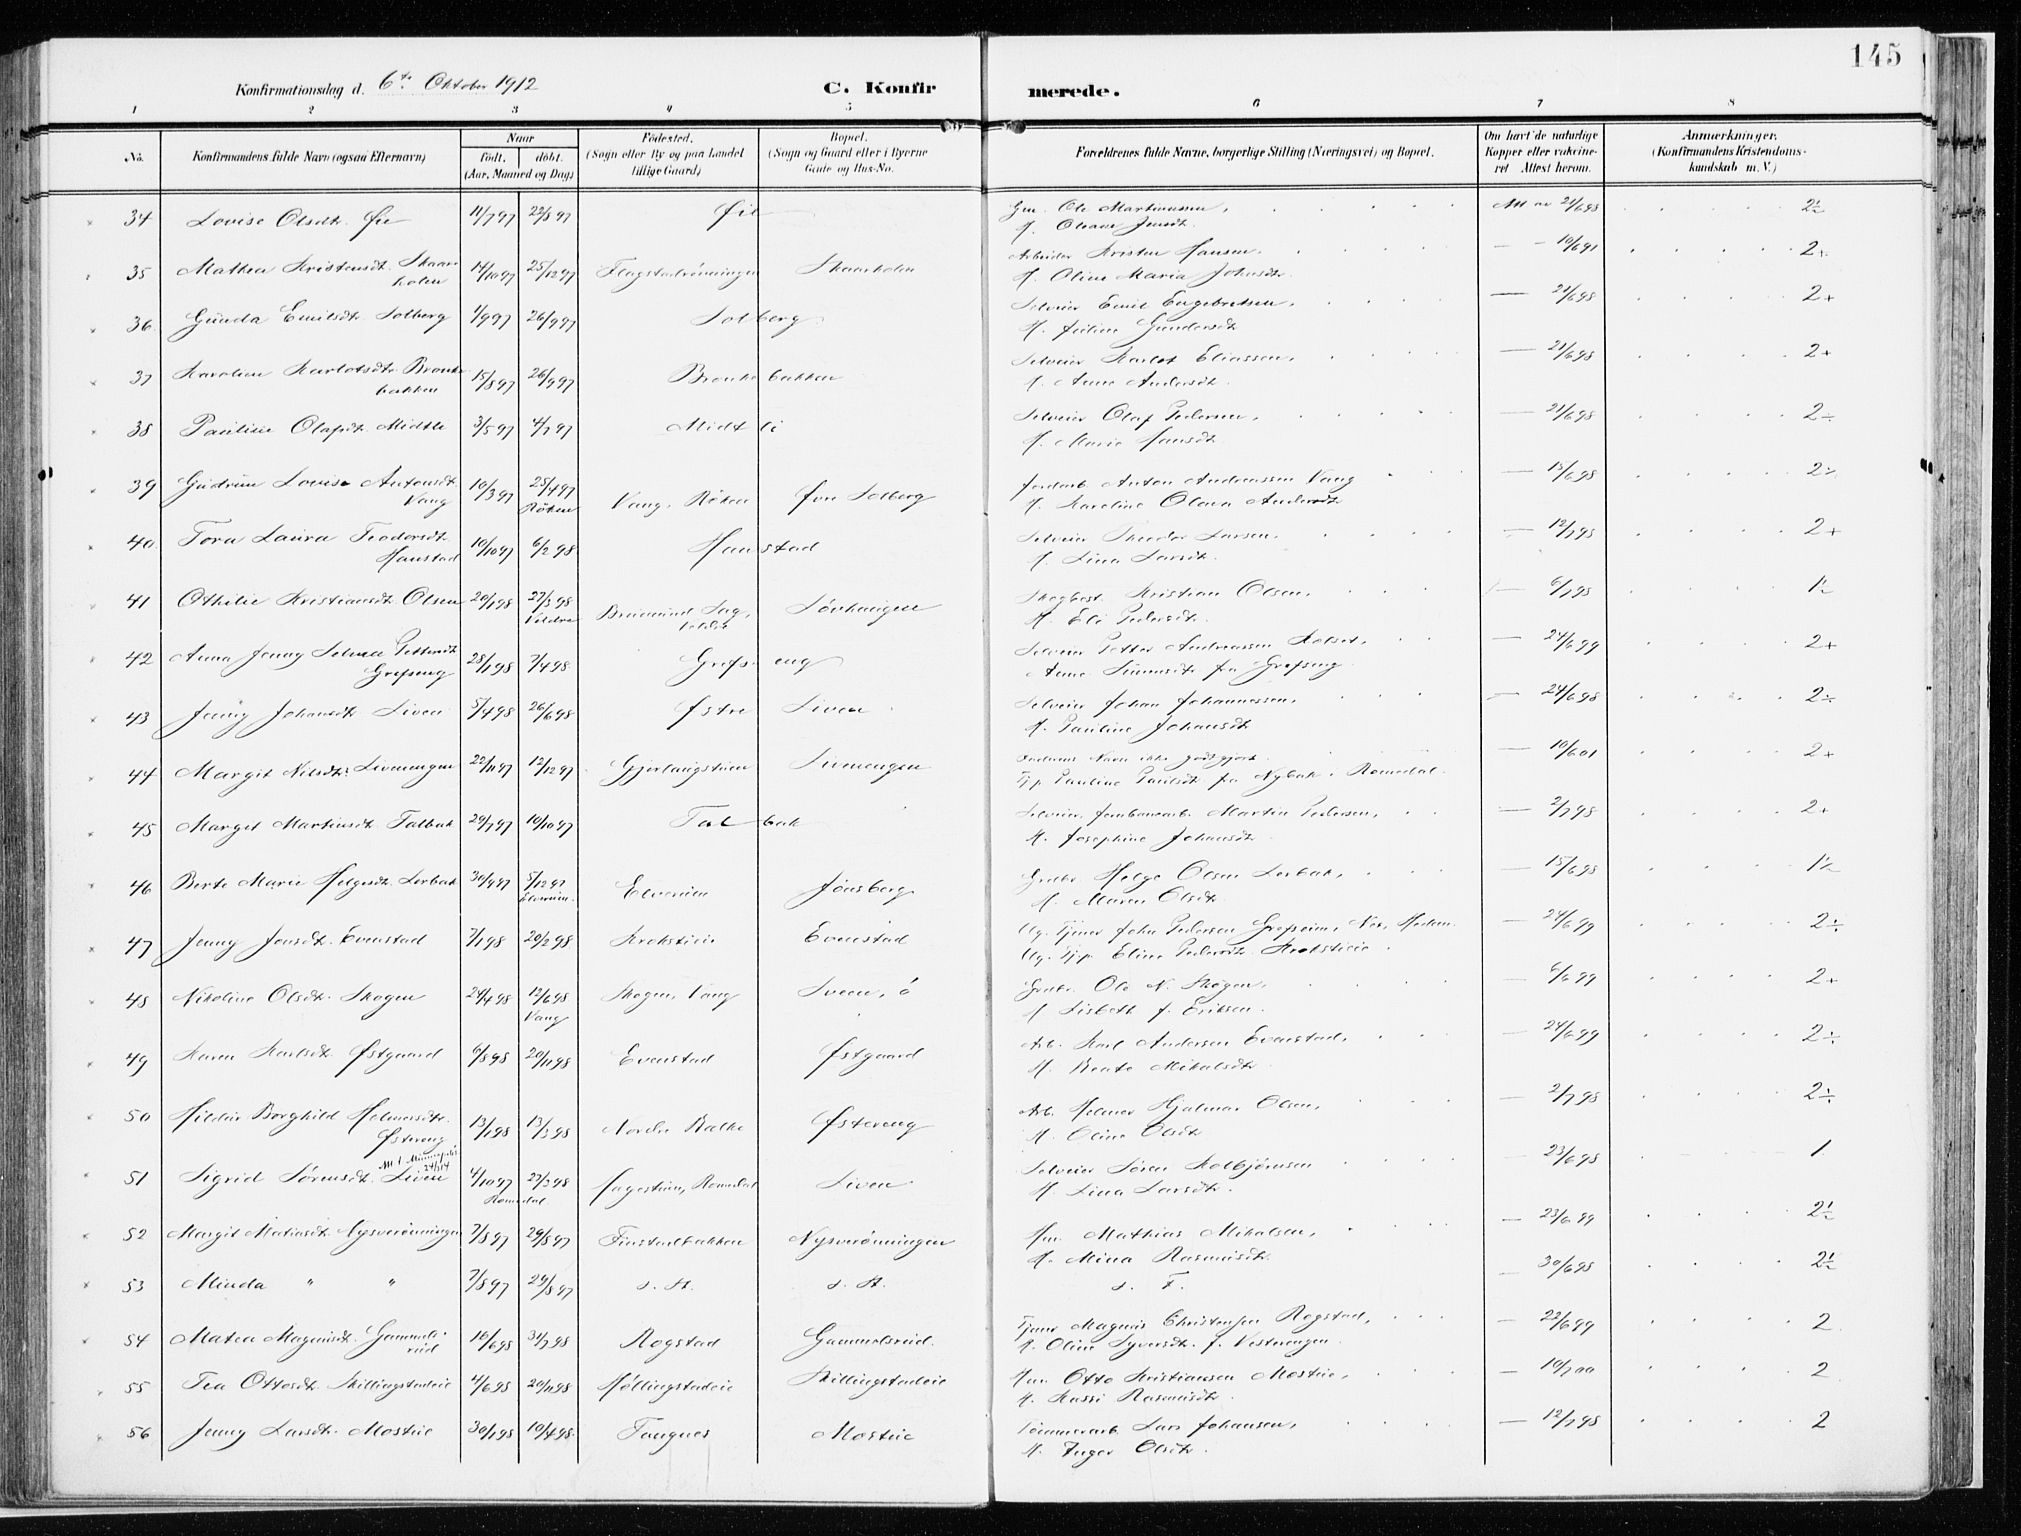 145
Konfirmationsdag d. 6te Oktober 1912
C. Konfirmerede.
1 2 3 4 5 6 7 8
No. Konfirmandens fulde Navn (ogsaa Efternavn) Naar født. døbt. (Aar, Maaned og Dag) Fødested. (Sogn eller By og paa Landet tillige Gaard) Bopæl. (Sogn og Gaard eller i Byerne Gade og Hus-No. Forældrenes fulde Navne, borgerlige Stilling (Næringsvei) og Bopæl. Om havt de naturlige Kopper eller vakcineret Attest herom. Anmærkninger. (Konfirmandens Kristendomskundskab m. V.)
34 Lovise Olsdtr. 11/7 97 22/8 97 Ole Martinussen, Att av 21/6 98 2½
H. Oleane Jensdt.
35 Mathea Kristensdt. Skaarholen 14/10 97 25/12 97 Flagstadrønningen Skaarholen Arbeider Kristen Hansen. 2+
H. Oline Maria Johnsdt.
36 Gunda Emilsdt. Solberg 1/9 97 26/9 97 Solberg Selveier Emil Engebretsen. 21/6 98 2+
H. Gundersdt.
37 Karoline Karlotsdt. Brænkebakken 15/8 97 26/9 97 Selveier Karlot Eliassen. 21/6 98 2+
H. Anne Andersdt.
38 Pauline Olafsdt. Midtli 3/5 97 4/7 97 Midtli Selveier Olaf Pedersen. 21/6 98 2÷
H. Marie Hansdt.
39 Gudrun Lovise Antonsdt. Vang 10/3 97 25/4 97 Røken Vang, Røken Øvre Solberg Jordarb. Anton Andreassen Vang 15/6 98 2÷
H. Karoline Olava Andersdt
40 Tora Laura Teodorsdt. Hanstad 10/10 97 6/2 98 Hanstad Selveier Theodor Larsen. 12/7 98 2+
H. Lina Larsdt.
41 Othilie Kristiansdt. Olsen 20/1 98 27/3 98 Veldre Sag, Veldre Løvhaugen Skogbest. Kristian Olsen. 6/7 98 1½
H. Eli Pedersdt.
42 Anna Jenny Pettersdt. Grefseng 28/1 98 7/4 98 Grefseng Selveier Petter Andreassen 24/6 99 2+
Anne fra Grefseng
43 Jenny Johansdt. Liven 5/4 98 26/6 98 Østre Liven Selveier Johan Johannessen. 24/6 98 2÷
H. Pauline Johansdt
44 Margit Nilsdt. Livenengen 22/11 97 12/12 97 Livenengen Faderens Navn ikke godtgjort. 10/6 01 2+
Tjp. Pauline Paulsdt fra Nybak i Romedal.
45 Margit Martinsdt. Talbak 29/7 97 10/10 97 Talbak Selveier, Jernbanearb. Martin Pedersen. 2/7 98 2+
H. Josephine Johansdt
46 Berte Marie Helgesdt. Lerbak 30/9 97 5/12 97 Elverum. Elverum Jønsberg Grubr. Helge Olsen Lerbak. 15/6 98 1½
H. Maren Olsdt.
47 Jenny Jonsdt. Evenstad 7/1 98 20/2 98 Krokstien Evenstad Ug. Tjener John Pedersen Grefseim, Nes, Hedem. 24/6 99 2÷
Ug. Tjp. Eline Pedersdt. Krokstien.
48 Nikoline Olsdt. Skogen 24/4 98 12/6 98 Vang Skogen, Vang Sveen, ø Grubr. Ole N. Skogen. 6/6 99 2+
H. Lisbeth f. Eriksen.
49 Karen Karlsdt. Østgaard 6/8 98 20/11 98 Evenstad Østgaard Arb. Karl Andersen Evenstad. 24/6 99 2÷
H. Beate Mikalsdt
50 Hildur Borghild Helmersdt. Østereng 13/1 98 13/3 98 Nordre Balke Østereng Arb. Helmer Hjalmar Olsen, 2/7 98 2÷
H. Oline Olsdt
51 Sigrid Sørensdt. Liven 4/10 97 27/3 98 Romedal Fagertun, Romedal Liven Selveier Søren Kolbjørnsen 23/6 98 1
H. Lina Larsdt.
52 Margit Matiasdt. Nysverønningen 7/8 97 29/8 97 Finstadbakken Nysverønningen Hm. Mathias Mikalsen, 23/6 99 2½
H. Mina Rasmusdt.
53 Minda " " 7/8 97 29/8 97 s. St. s. St. s. F. 30/6 98 2½
54 Matea Magnusdt. Gammelsrud 16/6 98 31/7 98 Rogstad Gammelsrud. Tjener Magnus Christensen Rogstad, 22/6 99 2
H. Oline Syversdt. f. Vesterengen
55 Tea Ottosdt. Skillingstadeie 4/6 98 20/11 98 Skillingstadeie Hm. Otto Kristiansen Mostue, 10/7 00 2
H. Kassi Rasmusdt.
56 Jenny Larsdt. Mostue 30/1 98 10/4 98 Tangnes Mostue Tømmerarb. Lars Johansen, 12/7 98 2
H. Inger Olsdt.